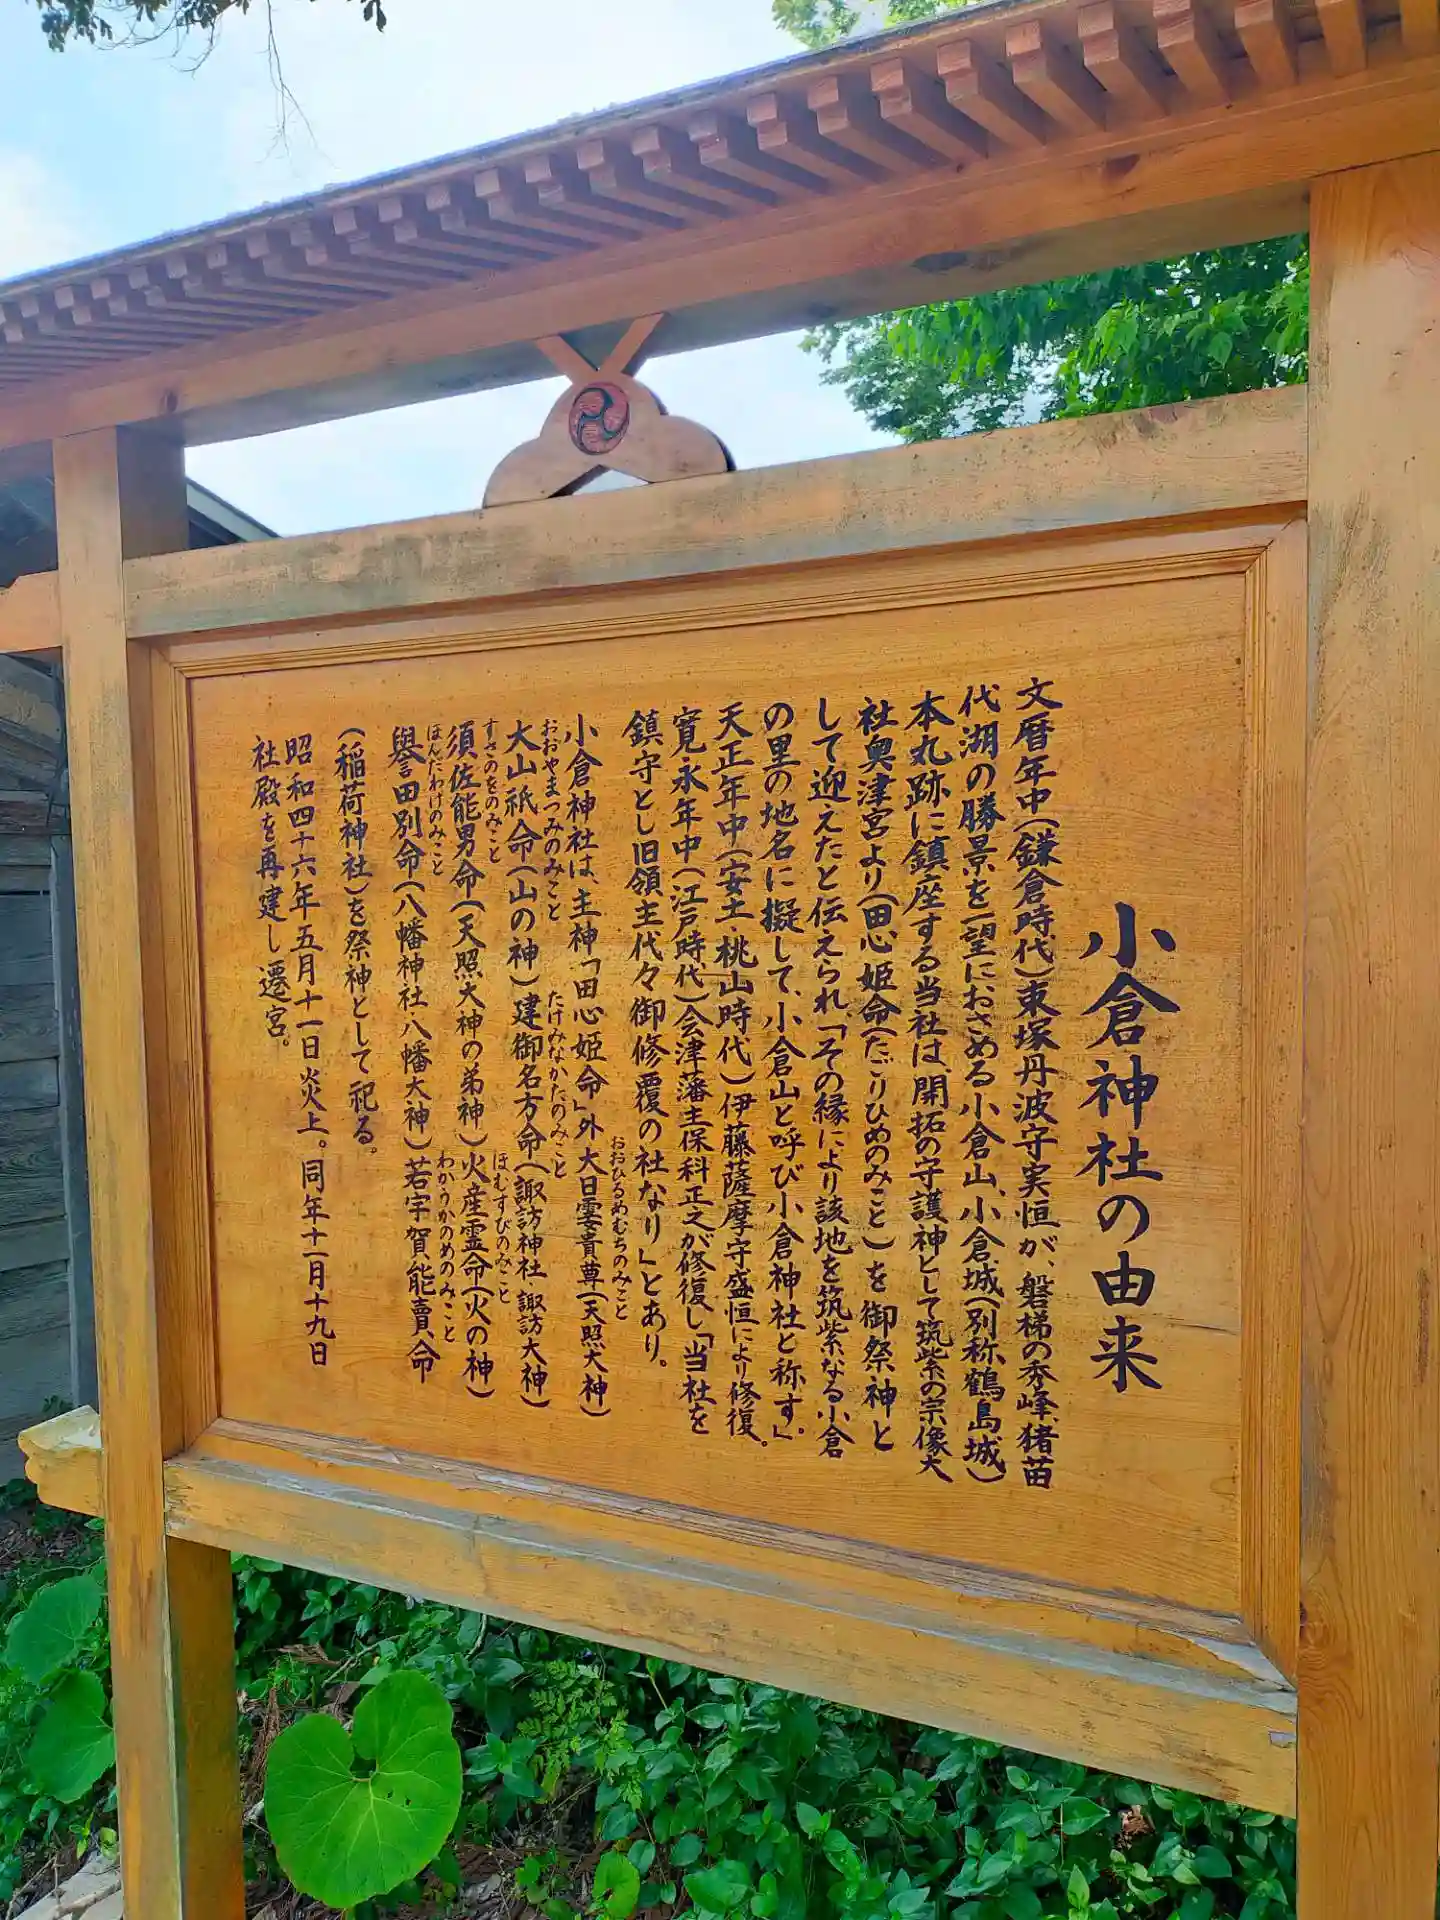 小倉神社の由来
文暦年中(鎌倉時代)東塚丹波守実恒が、磐梯の秀峰、猪苗
代湖の勝景を一望におさめる小倉山、小倉城(別称鶴島城)
本丸跡に鎮座する当社は、開拓の守護神として筑紫の宗像大
社奥津宮より(田心姫命(たごりひめのみこと)を御祭神と
して迎えたと伝えられ、「その縁により該地を筑紫なる小倉
の里の地名に擬して、小倉山と呼び小倉神社と称す。」
天正年中(安土・桃山時代)伊藤薩摩守盛恒により修復。
寛永年中(江戸時代)会津藩主保科正之が修復し「当社を
鎮守とし旧領主代々御修覆の社なり」とあり。
小倉神社は、主神「田心姫命」外大日孁貴尊(天照大神)
おおひるめむちのみこと
大山祇命(山の神)建御名方命(諏訪神社 諏訪大神)
おおやまつみのみこと
たけみなかたのみこと
須佐能男命(天照大神の弟神)火産霊命(火の神)
すさのをのみこと
ほむすびのみこと
譽田別命(八幡神社・八幡大神)若宇賀能賣命
ほんだわけのみこと
わかうかのめのみこと
(稲荷神社)を祭神として祀る。
昭和四十六年五月十一日炎上。同年十一月十九日
社殿を再建し遷宮。